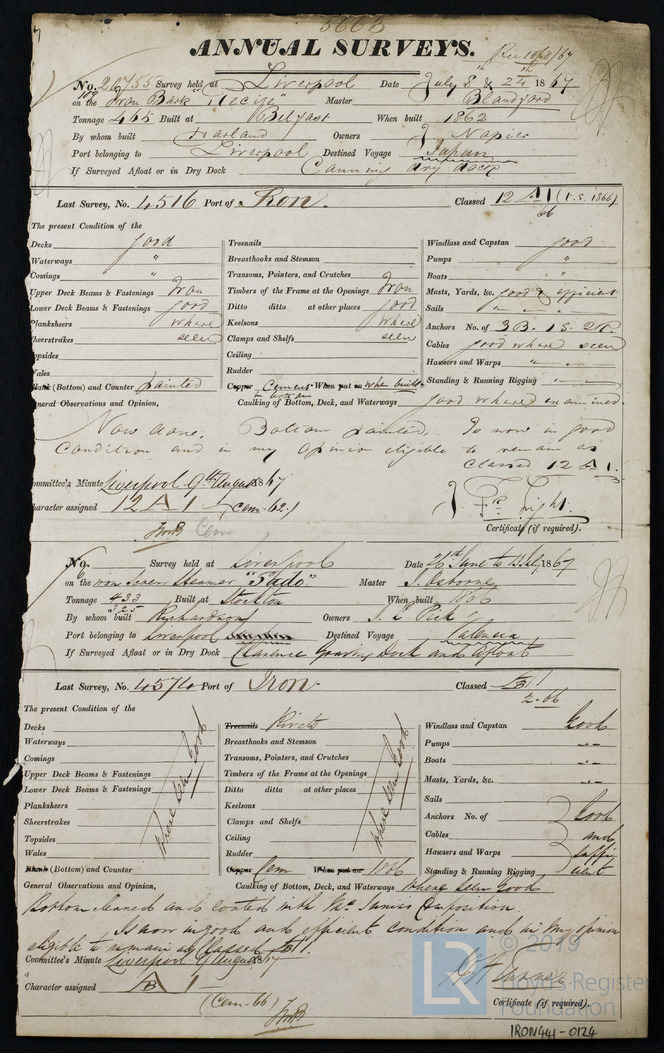 5668
ANNUAL SURVEYS.
Rec 10/8/67
No. 20755 Survey held at Liverpool Date July 8 & 24th 1867
on the Iron Bark "Recife" Master Blandford
Tonnage 465 Built at Belfast When built 1862
By whom built Harland Owners J. Napier
Port belonging to Liverpool Destined Voyage Japan
If Surveyed Afloat or in Dry Dock Canning dry dock
Last Survey, No. 4516 Port of Iron. Classed 12 A 1 (1866)
66
The present Condition of the
Decks good Treenails Windlass and Capstan good
Waterways " Breasthooks and Stemson Pumps "
Comings " Transoms, Pointers, and Crutches Boats "
Upper Deck Beams & Fastenings Iron Timbers of the Frame at the Openings Iron Masts, Yards, &c. good & efficient
Lower Deck Beams & Fastenings good Ditto ditto at other places good Sails "
Planksheers where Keelsons where Anchors No. of 3B. 1S. 2K.
Sheerstrakes seen Clamps and Shelfs seen Cables good where seen
Topsides Ceiling Hawsers and Warps "
Wales Rudder Standing & Running Rigging "
Plank (Bottom) and Counter painted Copper Cement in bottom When put on when built
General Observations and Opinion, Caulking of Bottom, Deck, and Waterways good where examined.
Now done, Bottom painted, Is now in good
condition and in my opinion eligible to remain as
Classed 12 A 1.
Committee's Minute Liverpool 9th August 1867
Character assigned 12 A 1 Cem-62
Light.
Certificate (if required).
No. Survey held at Liverpool Date 26th June to 1867
on the iron Screw Steamer Master J. Osborne
Tonnage 433 Built at Stockton When built 1866
325
By whom built Richardson Owners
Port belonging to Liverpool Destined Voyage Valencia
If Surveyed Afloat or in Dry Dock Clarence Graving Dock and Afloat
Last Survey, No. 4574 Port of Iron. Classed B 1
2-66
The present Condition of the
Decks Treenails Rivets Windlass and Capstan Good
Waterways Breasthooks and Stemson Pumps "
Comings Transoms, Pointers, and Crutches Boats "
Upper Deck Beams & Fastenings Timbers of the Frame at the Openings Masts, Yards, &c. "
Lower Deck Beams & Fastenings Ditto ditto at other places Sails
Planksheers Keelsons Anchors No. of Good
Sheerstrakes Clamps and Shelfs Cables and
Topsides Ceiling Hawsers and Warps suffi
Wales Rudder Standing & Running Rigging cient
where seen Good
where seen Good
Plank (Bottom) and Counter Copper Cem When put on 1866
General Observations and Opinion, Caulking of Bottom, Deck, and Waterways where seen Good
Bottom cleaned and coated with Composition
Is now in good and efficient condition and in my opinion
eligible to remain as Classed B 1.
Committee's Minute Liverpool 9 August 1867
Character assigned B 1
(Cem-66)
Certificate (if required).
LR © 2019
Lloyd's Register
Foundation
IRON441-0124